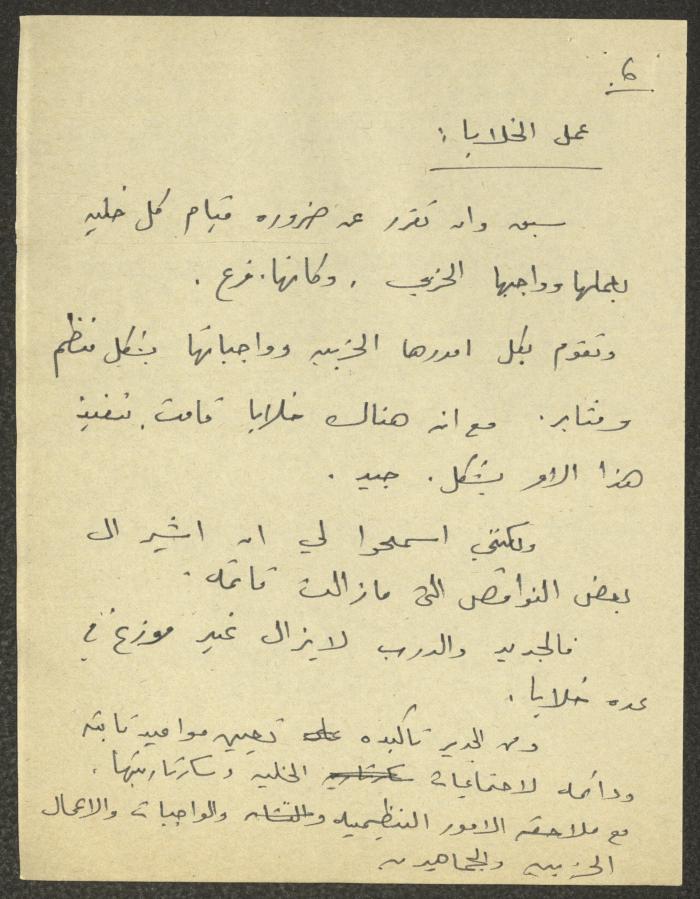 6.
عمل الخلايا :
سبق وان تقرر عن ضروره قيام كل خليه
بعملها وواجبها الحزبي . وكانها فرع .
وتقوم بكل امورها الحزبيه وواجباتها بشكل منظم
ومثابر . مع انه هناك خلايا قامت بتنفيذ
هذا الامر بشكل جيد .
ولكنني اسمحوا لي ان اشير الى
بعض النواقص التي مازالت قائمه .
فالجديد والدرب لايزال غير موزع في
عده خلايا .
ومن الجدير تاكيده على تعيين مواعيد ثابته
ودائمه لاجتماعات سكرتاريه الخليه وسكرتاريتها .
مع ملاحقه الامور التنظيميه والواجبات والاعمال
الحزبيه والجماهيريه